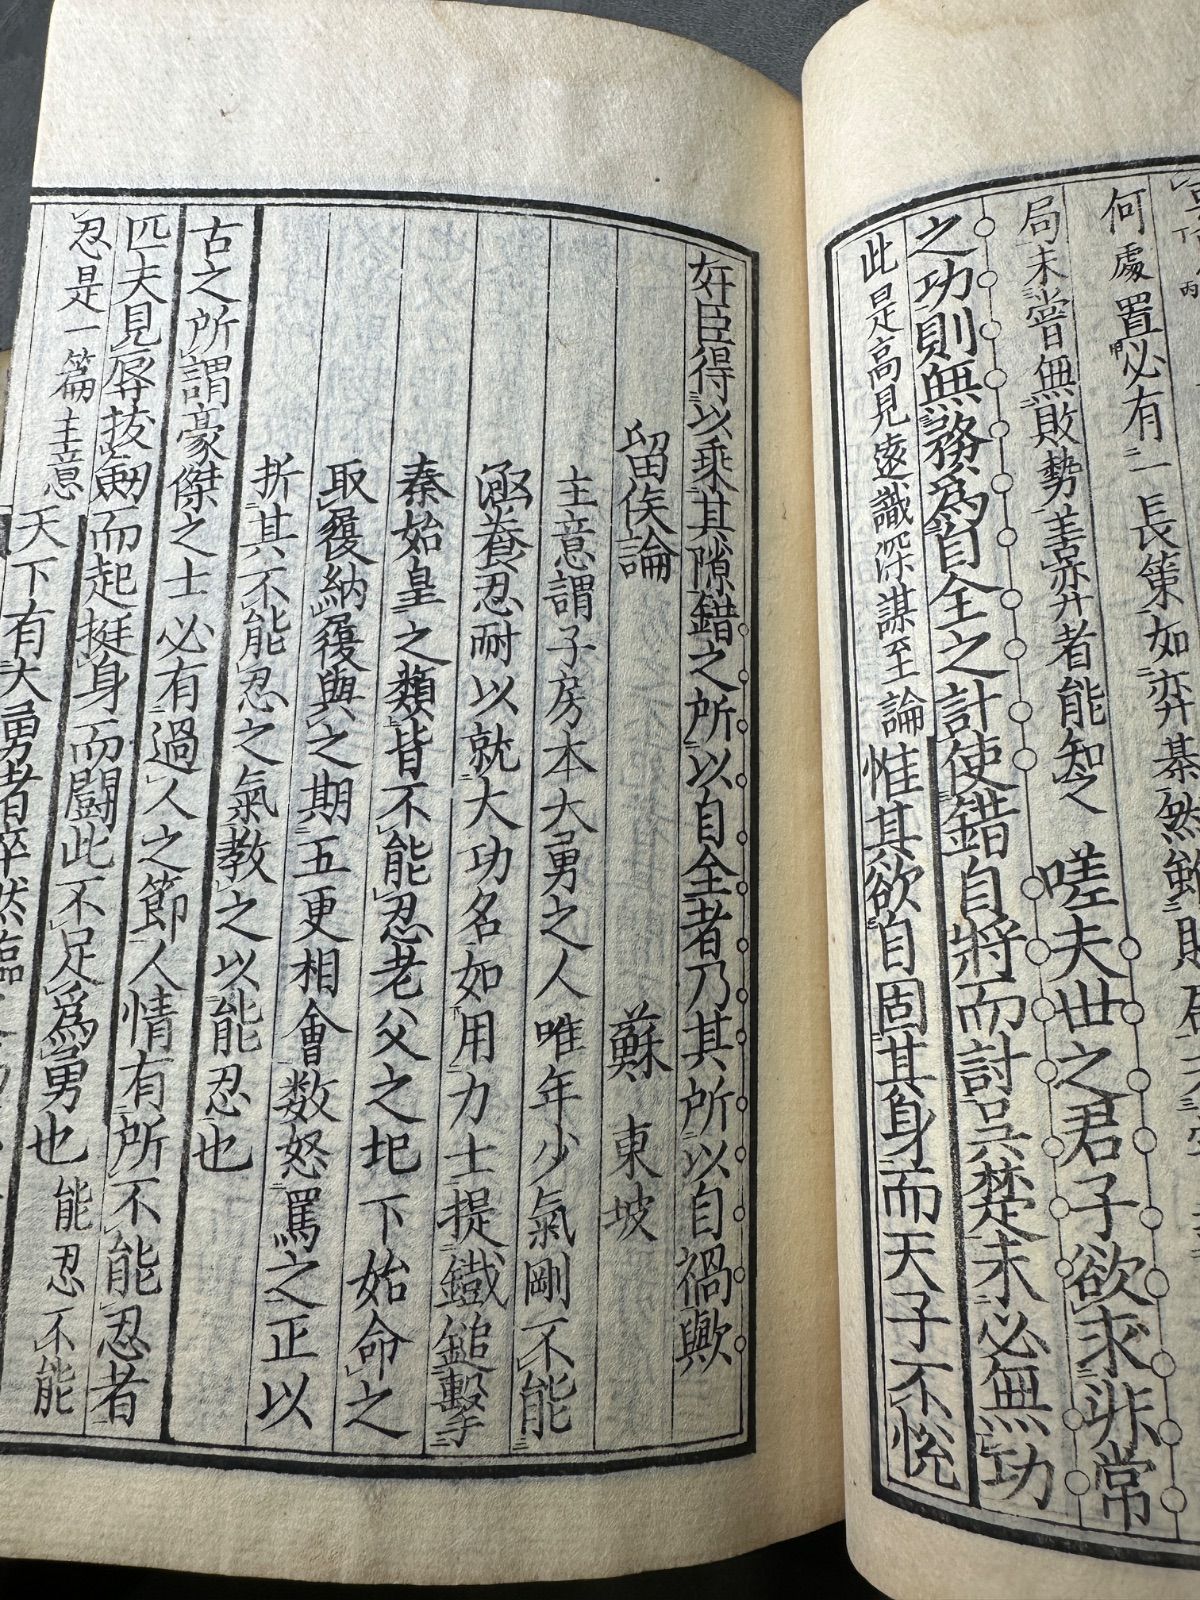 何處置必有一長策如弈棊然雖敗
局未嘗無敗勢善弈者能知之嗟夫世之君子欲求非常
之功則無務爲自全之計使錯自將而討吳楚未必無功
此是高見遠識深謀至論惟其欲自固其身而天子不悅
奸臣得以乘其隙錯之所以自全者乃其所以自禍歟
留侯論 蘇東坡
主意謂子房本大勇之人唯年少氣剛不能
涵養忍耐以就大功名如用力士提鐵鎚擊
秦始皇之類皆不能忍老父之圯下始命之
取履納履與之期五更相會数怒罵之正以
折其不能忍之氣教之以能忍也
古之所謂豪傑之士必有過人之節人情有所不能忍者
匹夫見辱拔劒而起挺身而鬪此不足爲勇也能忍不能
忍是一篇主意天下有大勇者卒然臨